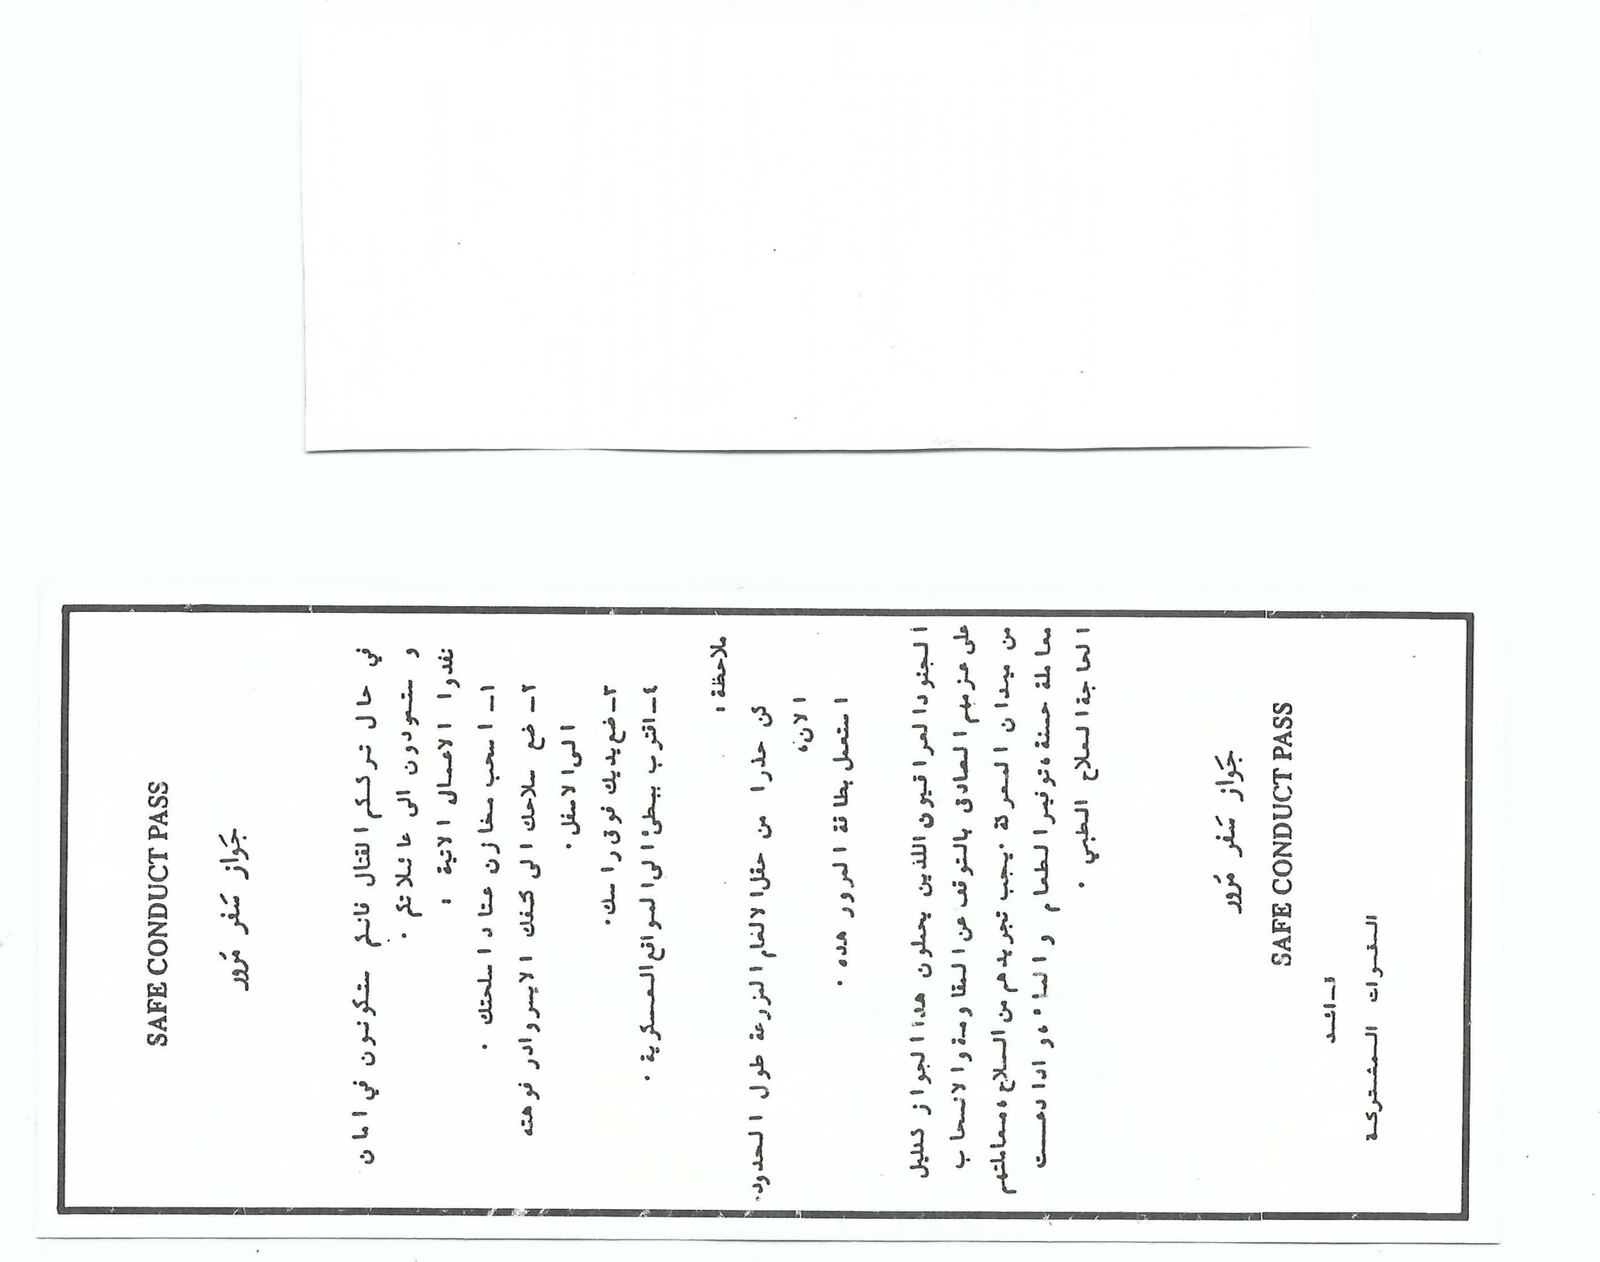 SAFE CONDUCT PASS
جَواز سَفر مُرور
في حال تركـكـم القتال فانكم ستكونـون في امان
و ستعودون الى عائلاتكم .
نفدوا الاعمال الاتية :
١ـ اسحب مخازن عتاد اسلحتك .
٢ـ ضع سلاحك الى كـتفك الايسر وادر فوهته
الى الاسفل .
٣ـ ضع يديك فوق راسك .
٤ـ اقترب ببطئ الى المواقع العسـكرية .
ملاحظة :
كن حذرا من حقل الالغام المزروعة طول الحدود .
الان،
استعمل بطاقة المرور هده .
الجنود العراقيون اللذين يحملون هدا الجواز كدليل
على عزمهم الصادق بالتوقف عن المقاومة والانسحاب
من ميدان المعركة . يجب تجريدهم من السلاح، معاملتهم
معاملة حسنة، توفير الطعام و الماء، و ادا دعـت
الحاجة العلاج الطبي .
جَواز سَفر مُرور
SAFE CONDUCT PASS
قـائد
القوات المشتركة